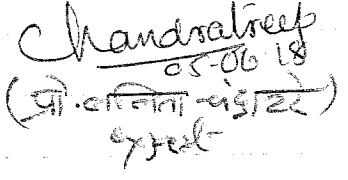 Chandratreep
05-06 18
(प्रो. ललिता चंद्रात्रे)